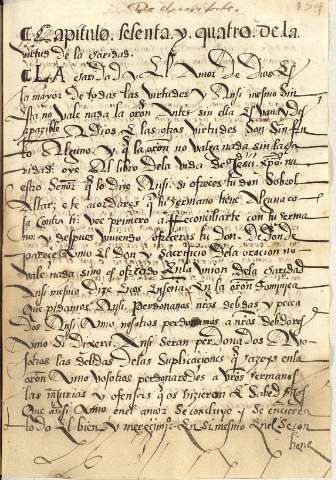 De charitate.
154
¶ Capitulo. sesenta. y. quatro. De la
virtud de la charidad.
¶ LA charidad y El Amor de Dios Es
la mayor de todas las virtudes y Ansi mesmo Sin
Ella no vale nada la oron Antes sin ella Es vana y des
apazible A dios y Las otras virtudes Son Sin fru
to Alguno. y q la oron no valga nada sin la cha
ridad: oye Al libro de la vida de Jesu xpo nu
estro Señor q lo dize Ansi: si ofreces tu don Sobre el
Altar; e te acordares q tu hermano tiene Alguna co
sa Contra ti: vee primero A Reconciliarte con tu herma
no. y despues viniendo ofreceras tu don. De donde
parece Como El don y Sacrificio De la oracion no
vale nada sino es ofrecido En la union de la charidad
Ansi mesmo Dize E nos Enseña En la oron dominica
Que pidamos Ansi Perdonanos nras debdas y pecca
dos Ansi Como nosotros perdonamos a nros debdores
Como Si dixera. Ansi Seran perdonados A vo
sotros las debdas de las Suplicaciones q hazeys en la
oron Como vosotros perdonaredes a vros hermanos
las injurias y ofensas q os hizieron E Sabed pues
Que Ansi Como en el amor Se concluye y Se encierra
todo El bien y merecimio. En si mesmo En el Se con
tiene